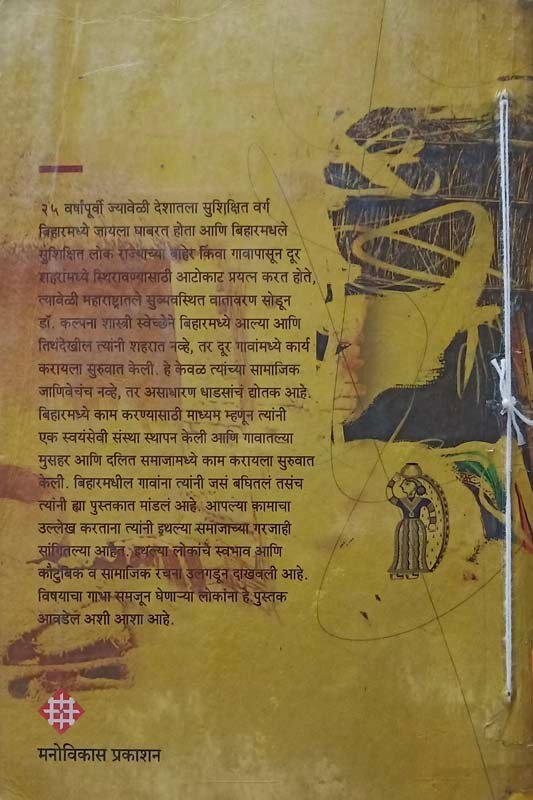 २५ वर्षांपूर्वी ज्यावेळी देशातला सुशिक्षित वर्ग
बिहारमध्ये जायला घाबरत होता आणि बिहारमधले
सुशिक्षित लोक राज्याच्या बाहेर किंवा गावापासून दूर
शहरांमध्ये स्थिरावण्यासाठी आटोकाट प्रयत्न करत होते,
त्यावेळी महाराष्ट्रातले सुव्यवस्थित वातावरण सोडून
डॉ. कल्पना शास्त्री स्वेच्छेने बिहारमध्ये आल्या आणि
तिथंदेखील त्यांनी शहरात नव्हे, तर दूर गावांमध्ये कार्य
करायला सुरुवात केली. हे केवळ त्यांच्या सामाजिक
जाणिवेचंच नव्हे, तर असाधारण धाडसाचं द्योतक आहे.
बिहारमध्ये काम करण्यासाठी माध्यम म्हणून त्यांनी
एक स्वयंसेवी संस्था स्थापन केली आणि गावातल्या
मुसहर आणि दलित समाजामध्ये काम करायला सुरुवात
केली. बिहारमधील गावांना त्यांनी जसं बघितलं तसंच
त्यांनी ह्या पुस्तकात मांडलं आहे. आपल्या कामाचा
उल्लेख करताना त्यांनी इथल्या समाजाच्या गरजाही
सांगितल्या आहेत. इथल्या लोकांचे स्वभाव आणि
कौटुंबिक व सामाजिक रचना उलगडून दाखवली आहे.
विषयाचा गाभा समजून घेणाऱ्या लोकांना हे पुस्तक
आवडेल अशी आशा आहे.
मनोविकास प्रकाशन